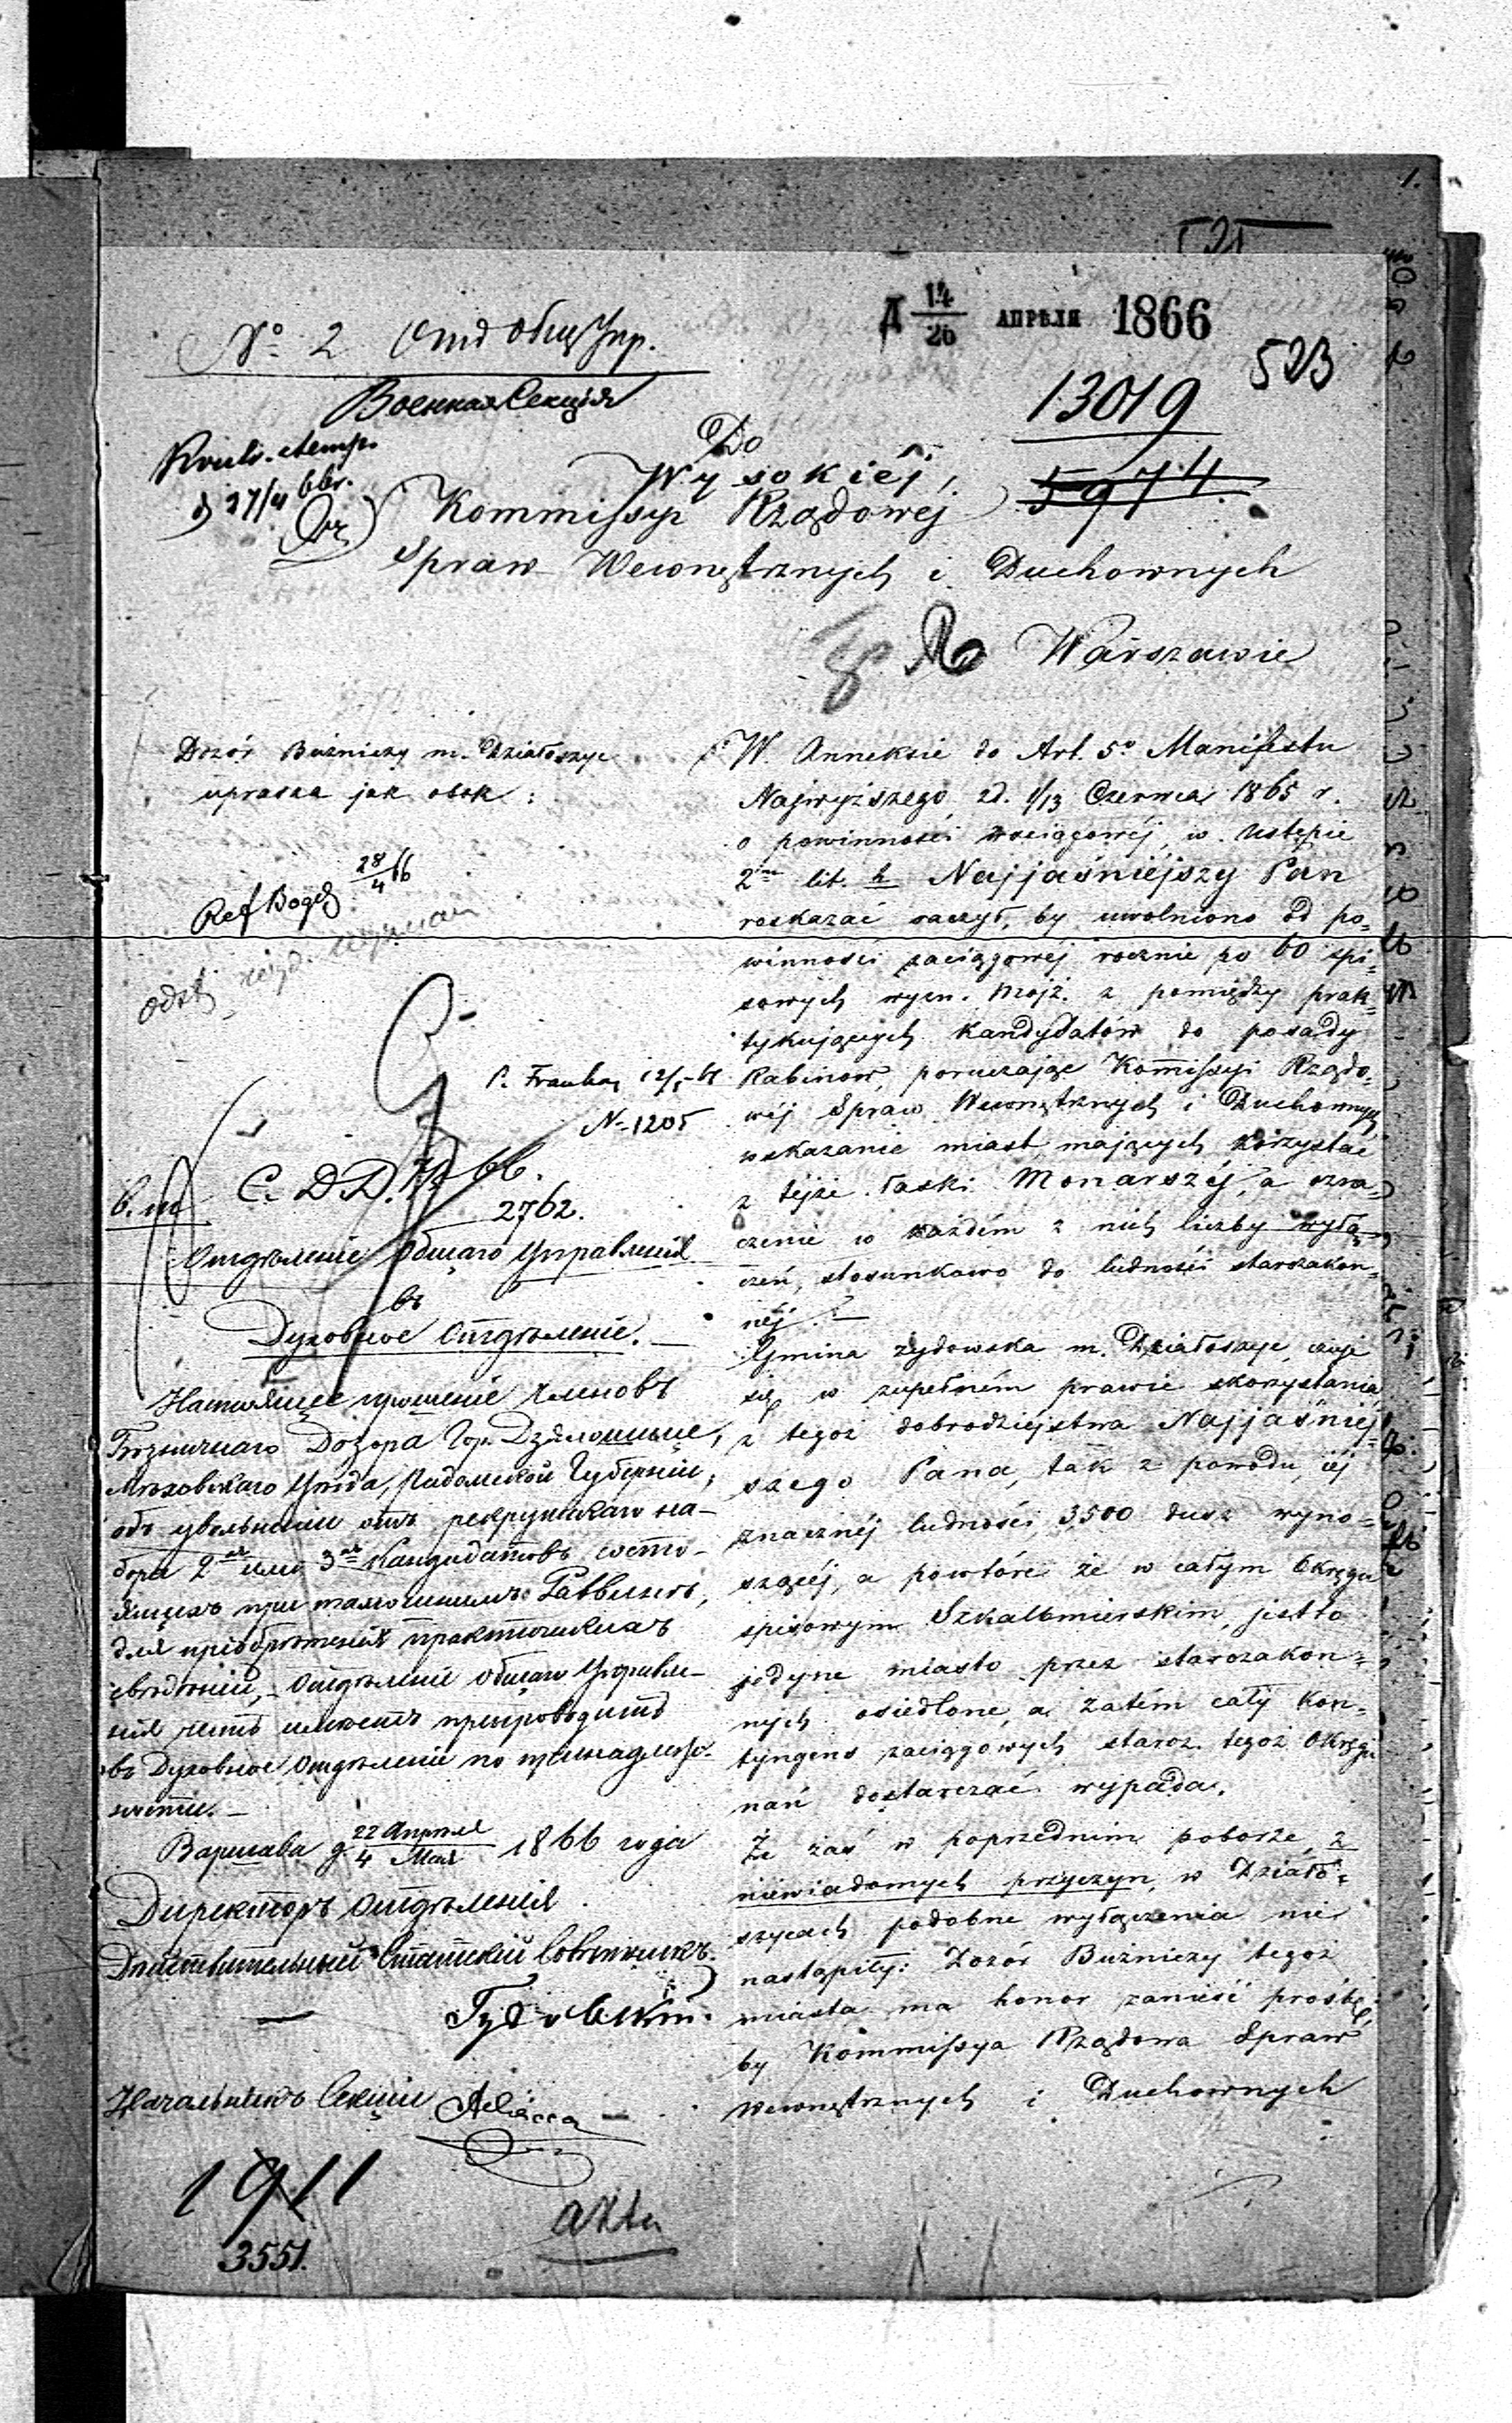 1.
Д 14/26 АПРѢЛЯ 1866
№ 2 Отд Общ Упр.
Военная Секція
523
13019
5974.
27/4 66r.
Do
Wysokiéj
Kommissyi Rządowej
Spraw Wewnętrznych i Duchownych
w Warszawie
Dozór Bużniczy m. Działoszyc
uprasza jak obok:
Ref Bogd 28/4 66
odst
12/5
N-1205
C. D D. 66.
2762.
Отдѣленіе Общаго Управленія
въ
Духовное Отдѣленіе.—
Настоящее прошеніе членовъ
Божничнаго Дозора Гор. Дзялошице,
Мѣховскаго Уѣзда, Радомской Губерніи,
объ увольненіи отъ рекрутскаго на-
бора 2хъ или 3хъ Кандидатовъ состо-
ящихъ при тамошнемъ Раввинѣ,
для пріобрѣтенія практическихъ
свѣдѣній,- Отдѣленіе Общаго Управле-
нія честь имѣетъ препроводить
въ Духовное Отдѣленіе по принадлежно-
сти.—
Варшава д. 22 Апрѣля/4 Мая 1866 года
Директоръ Отдѣленія
Дѣйствительный Статскій Совѣтникъ
Начальникъ Секціи
1911
3551.
akta
W Anneksie do Art. 5º Manifestu
Najwyższego zd. 1/13 Czerwca 1865 r.
o powinności zaciągowéj, w Ustępie
2im lit. h Najjaśniéjszy Pan
roskazać raczył, by uwolniono od po=
winności zaciągowéj rocznie po 60 spi=
sowych wyzn. Mojż. z pomiędzy prak=
tykujących kandydatów do posady
Rabinów, poruczając Kommissyi Rządo=
wéj Spraw Wewnętrznych i Duchownych
wskazanie miast, mających korzystać
z téjże łaski Monarszéj, a ozna=
czenie w każdém z nich liczby wyłą=
czeń, stosunkowo do ludności starozakon=
néj.—
Gmina żydowska m. Działoszyc, czuje
się w zupełném prawie skorzystania
z tegoż dobrodziejstwa Najjaśniéj=
szego Pana, tak z powodu jéj
znacznéj ludności 3,500 dusz wyno=
szącéj, a powtóre że w całym Okręgu
spisowym Szkalbmierskim, jest to
jedyne miasto przez starozakon=
nych osiedlone, a zatém cały kon=
tyngens zaciągowych staroz. tegoż Okręgu
nań dostarczać wypada.
Że zaś w poprzednim poborze, z
niewiadomych przyczyn, w Działo=
szycach podobne wyłączenia nie
nastąpiły: Dozór Bużniczy tegoż
miasta ma honor zanieść prośbę,
by Kommissya Rządowa Spraw
Wewnętrznych i Duchownych